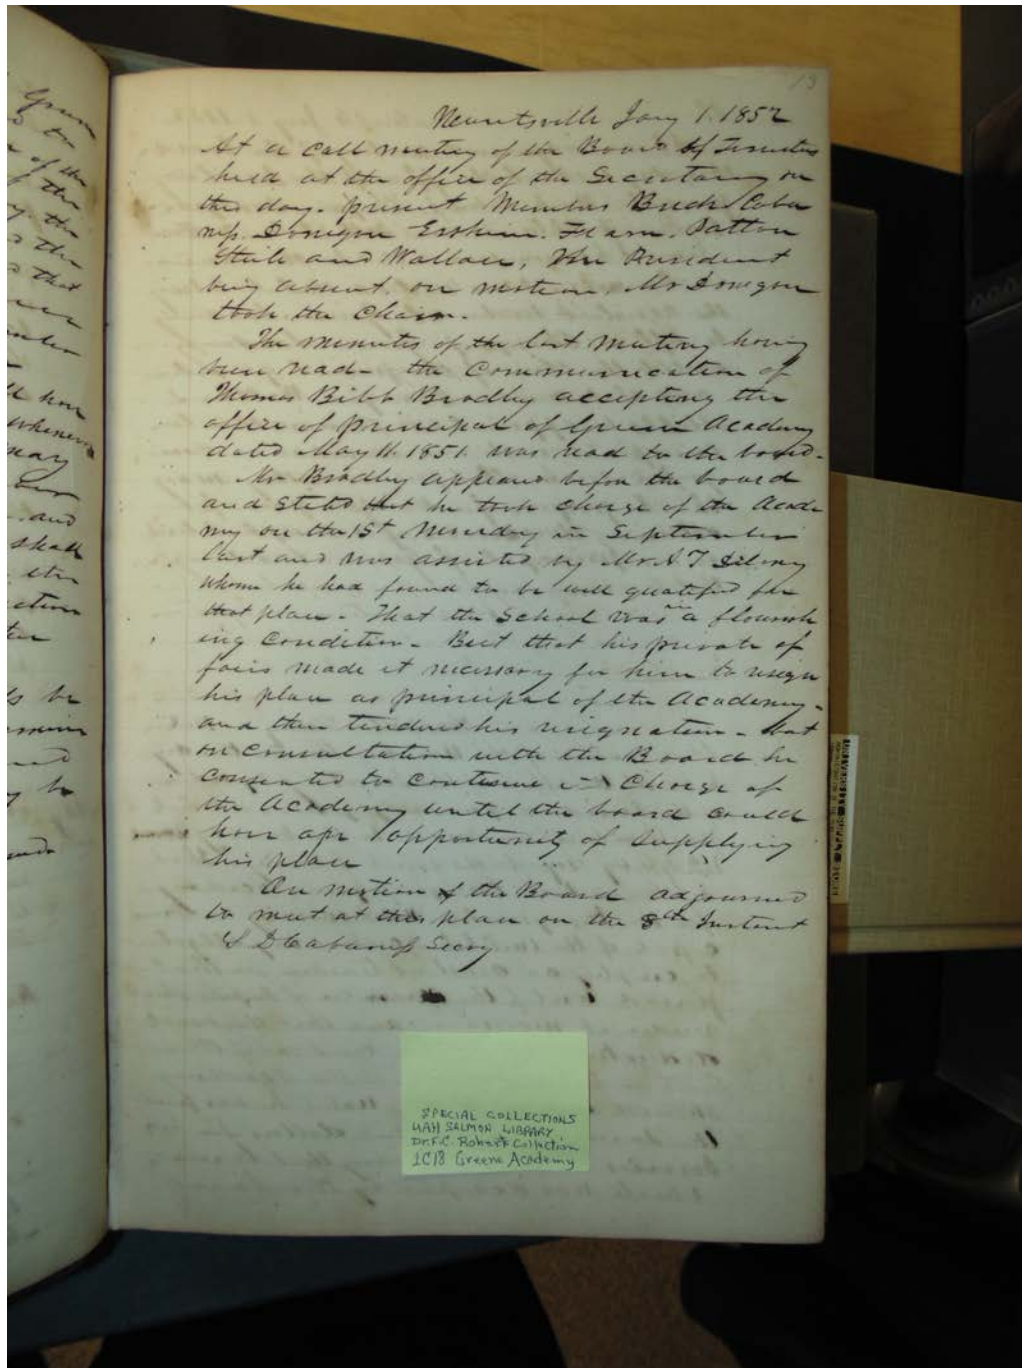 13
Huntsville Jany 1. 1852
At a call meeting of the Board of Trustees
held at the office of the Secretary on
this day. present Members Beck. Caba
niss. Donegan Erskine. Fearn. Patton
Steele and Wallace, The President
being absent, on motion, Mr Donegan
took the Chair.
The minutes of the last meeting having
been read - the Communication of
Thomas Bibb Bradley accepting the
office of Principal of Green Academy
dated May 11. 1851. was read to the board -
Mr Bradley appeared before the board
and stated that he took charge of the Acade
my on the 1st Monday in September
last and was assisted by Mr A T
whom he had found to be well qualified for
that place - That the School was in a flourish
ing condition - But that his private af
fairs made it necessary for him to resign
his place as principal of the Academy -
and then tendered his resignation - but
on consultation with the Board he
consented to continue in charge of
the Academy until the board could
have an opportunity of supplying
his place
On motion of the Board adjourned
to meet at this place on the 8th Instant
S D Cabaniss Secry
SPECIAL COLLECTIONS
UAH SALMON LIBRARY
Dr. F.C. Roberts Collection
1C18 Greene Academy